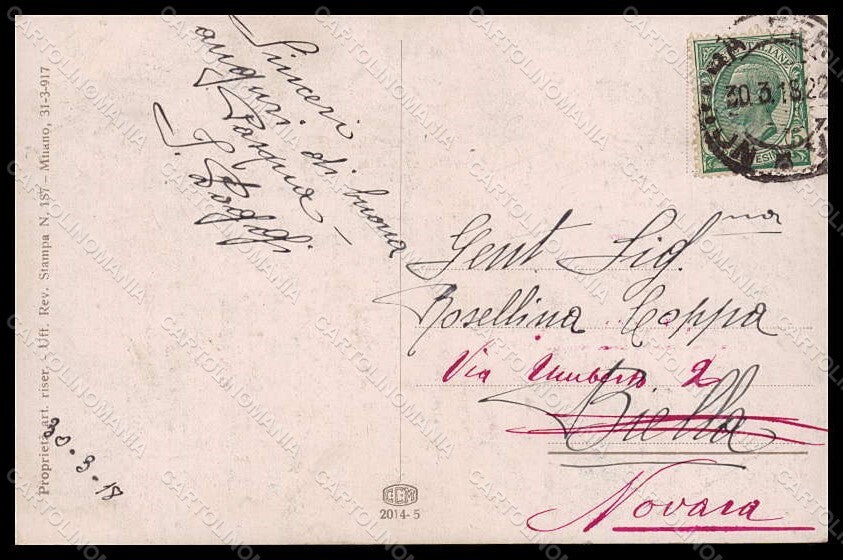 Proprietà art. riser. - Uff. Rev. Stampa N. 187 - Milano, 31-3-917
Sinceri
auguri di buona
Pasqua -
30-3-18
30.3.18 22
Gent. Sig.na
Rosellina Coppa
Via Umberto 2
Biella
Novara
CCM
2014-5
CARTOLINOMANIA